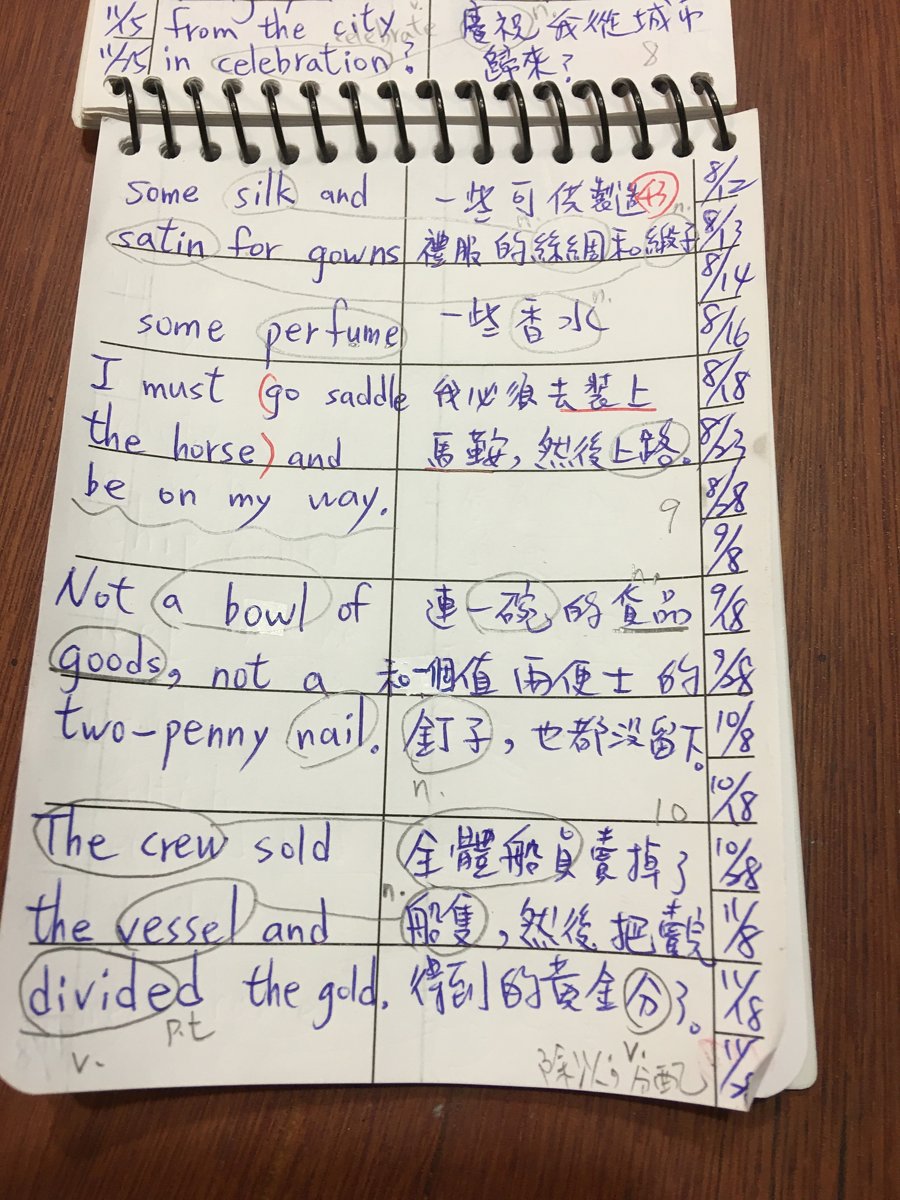 11/5 from the city 慶祝我從城市
11/15 in celebration? 歸來?
celebrate
n.
8
some silk and 一些可供製造 8/12
n.
satin for gowns 禮服的絲綢和緞子 8/13
8/14
some perfume 一些香水 8/16
n.
I must (go saddle 我必須去裝上 8/18
the horse) and 馬鞍,然後上路。 8/23
be on my way. 9 8/28
9/8
n.
Not a bowl of 連一碗的貨品 9/18
goods, not a 和一個值兩便士的 9/28
two-penny nail. 釘子,也都沒留下。 10/8
n.
10 10/18
The crew sold 全體船員賣掉了 10/28
n.
the vessel and 船隻,然後把賣 11/8
divided the gold. 得到的黃金分了。 11/18
p.t
v. 除以;分配 v.